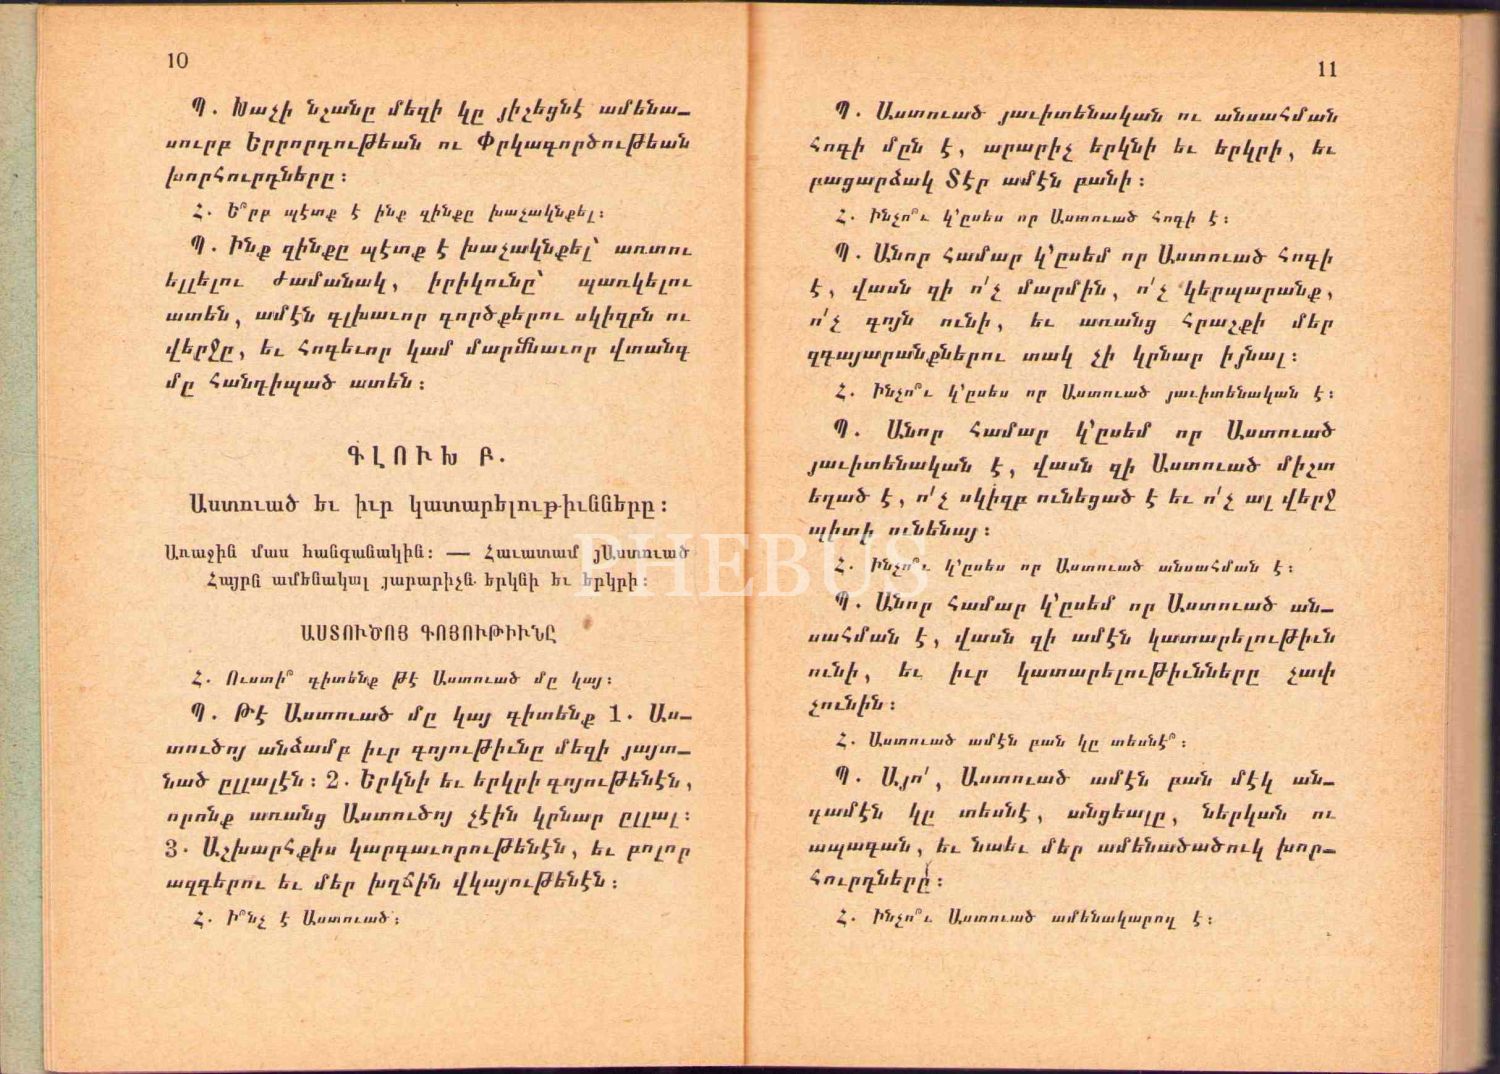 10
Պ. Խաչի նշանը մեզի կը յիշեցնէ ամենա-
սուրբ Երրորդութեան ու Փրկագործութեան
խորհուրդները։
Հ. Ե՞րբ պէտք է ինք զինքը խաչակնքել։
Պ. Ինք զինքը պէտք է խաչակնքել՝ առտու
ելլելու ժամանակ, իրիկունը՝ պառկելու
ատեն, ամէն գլխաւոր գործքերու սկիզբն ու
վերջը, եւ հոգեւոր կամ մարմնաւոր վտանգ
մը հանդիպած ատեն։
ԳԼՈՒԽ Բ.
Աստուած եւ իւր կատարելութիւնները։
Առաջին մաս հանգանակին։ — Հաւատամ յԱստուած
Հայրն ամենակալ յարարիչն երկնի եւ երկրի։
ԱՍՏՈՒԾՈՅ ԳՈՅՈՒԹԻՒՆԸ
Հ. Ուստի՞ գիտենք թէ Աստուած մը կայ։
Պ. Թէ Աստուած մը կայ գիտենք 1. Աս-
տուծոյ անձամբ իւր գոյութիւնը մեզի յայտ-
նած ըլլալէն։ 2. Երկնի եւ երկրի գոյութենէն,
որոնք առանց Աստուծոյ չէին կրնար ըլլալ։
3. Աշխարհքիս կարգաւորութենէն, եւ բոլոր
ազգերու եւ մեր խղճին վկայութենէն։
Հ. Ի՞նչ է Աստուած։
11
Պ. Աստուած յաւիտենական ու անսահման
հոգի մըն է, արարիչ երկնի եւ երկրի, եւ
բացարձակ Տէր ամէն բանի։
Հ. Ինչո՞ւ կ՚ըսես որ Աստուած հոգի է։
Պ. Անոր համար կ՚ըսեմ որ Աստուած հոգի
է, վասն զի ո՛չ մարմին, ո՛չ կերպարանք,
ո՛չ գոյն ունի, եւ առանց հրաշքի մեր
զգայարանքներու տակ չի կրնար իյնալ։
Հ. Ինչո՞ւ կ՚ըսես որ Աստուած յաւիտենական է։
Պ. Անոր համար կ՚ըսեմ որ Աստուած
յաւիտենական է, վասն զի Աստուած միշտ
եղած է, ո՛չ սկիզբ ունեցած է եւ ո՛չ ալ վերջ
պիտի ունենայ։
Հ. Ինչո՞ւ կ՚ըսես որ Աստուած անսահման է։
Պ. Անոր համար կ՚ըսեմ որ Աստուած ան-
սահման է, վասն զի ամէն կատարելութիւն
ունի, եւ իւր կատարելութիւնները չափ
չունին։
Հ. Աստուած ամէն բան կը տեսնէ՞։
Պ. Այո՛, Աստուած ամէն բան մէկ ան-
գամէն կը տեսնէ, անցեալը, ներկան ու
ապագան, եւ նաեւ մեր ամենածածուկ խոր-
հուրդները։
Հ. Ինչո՞ւ Աստուած ամենակարող է։
PHEBUS